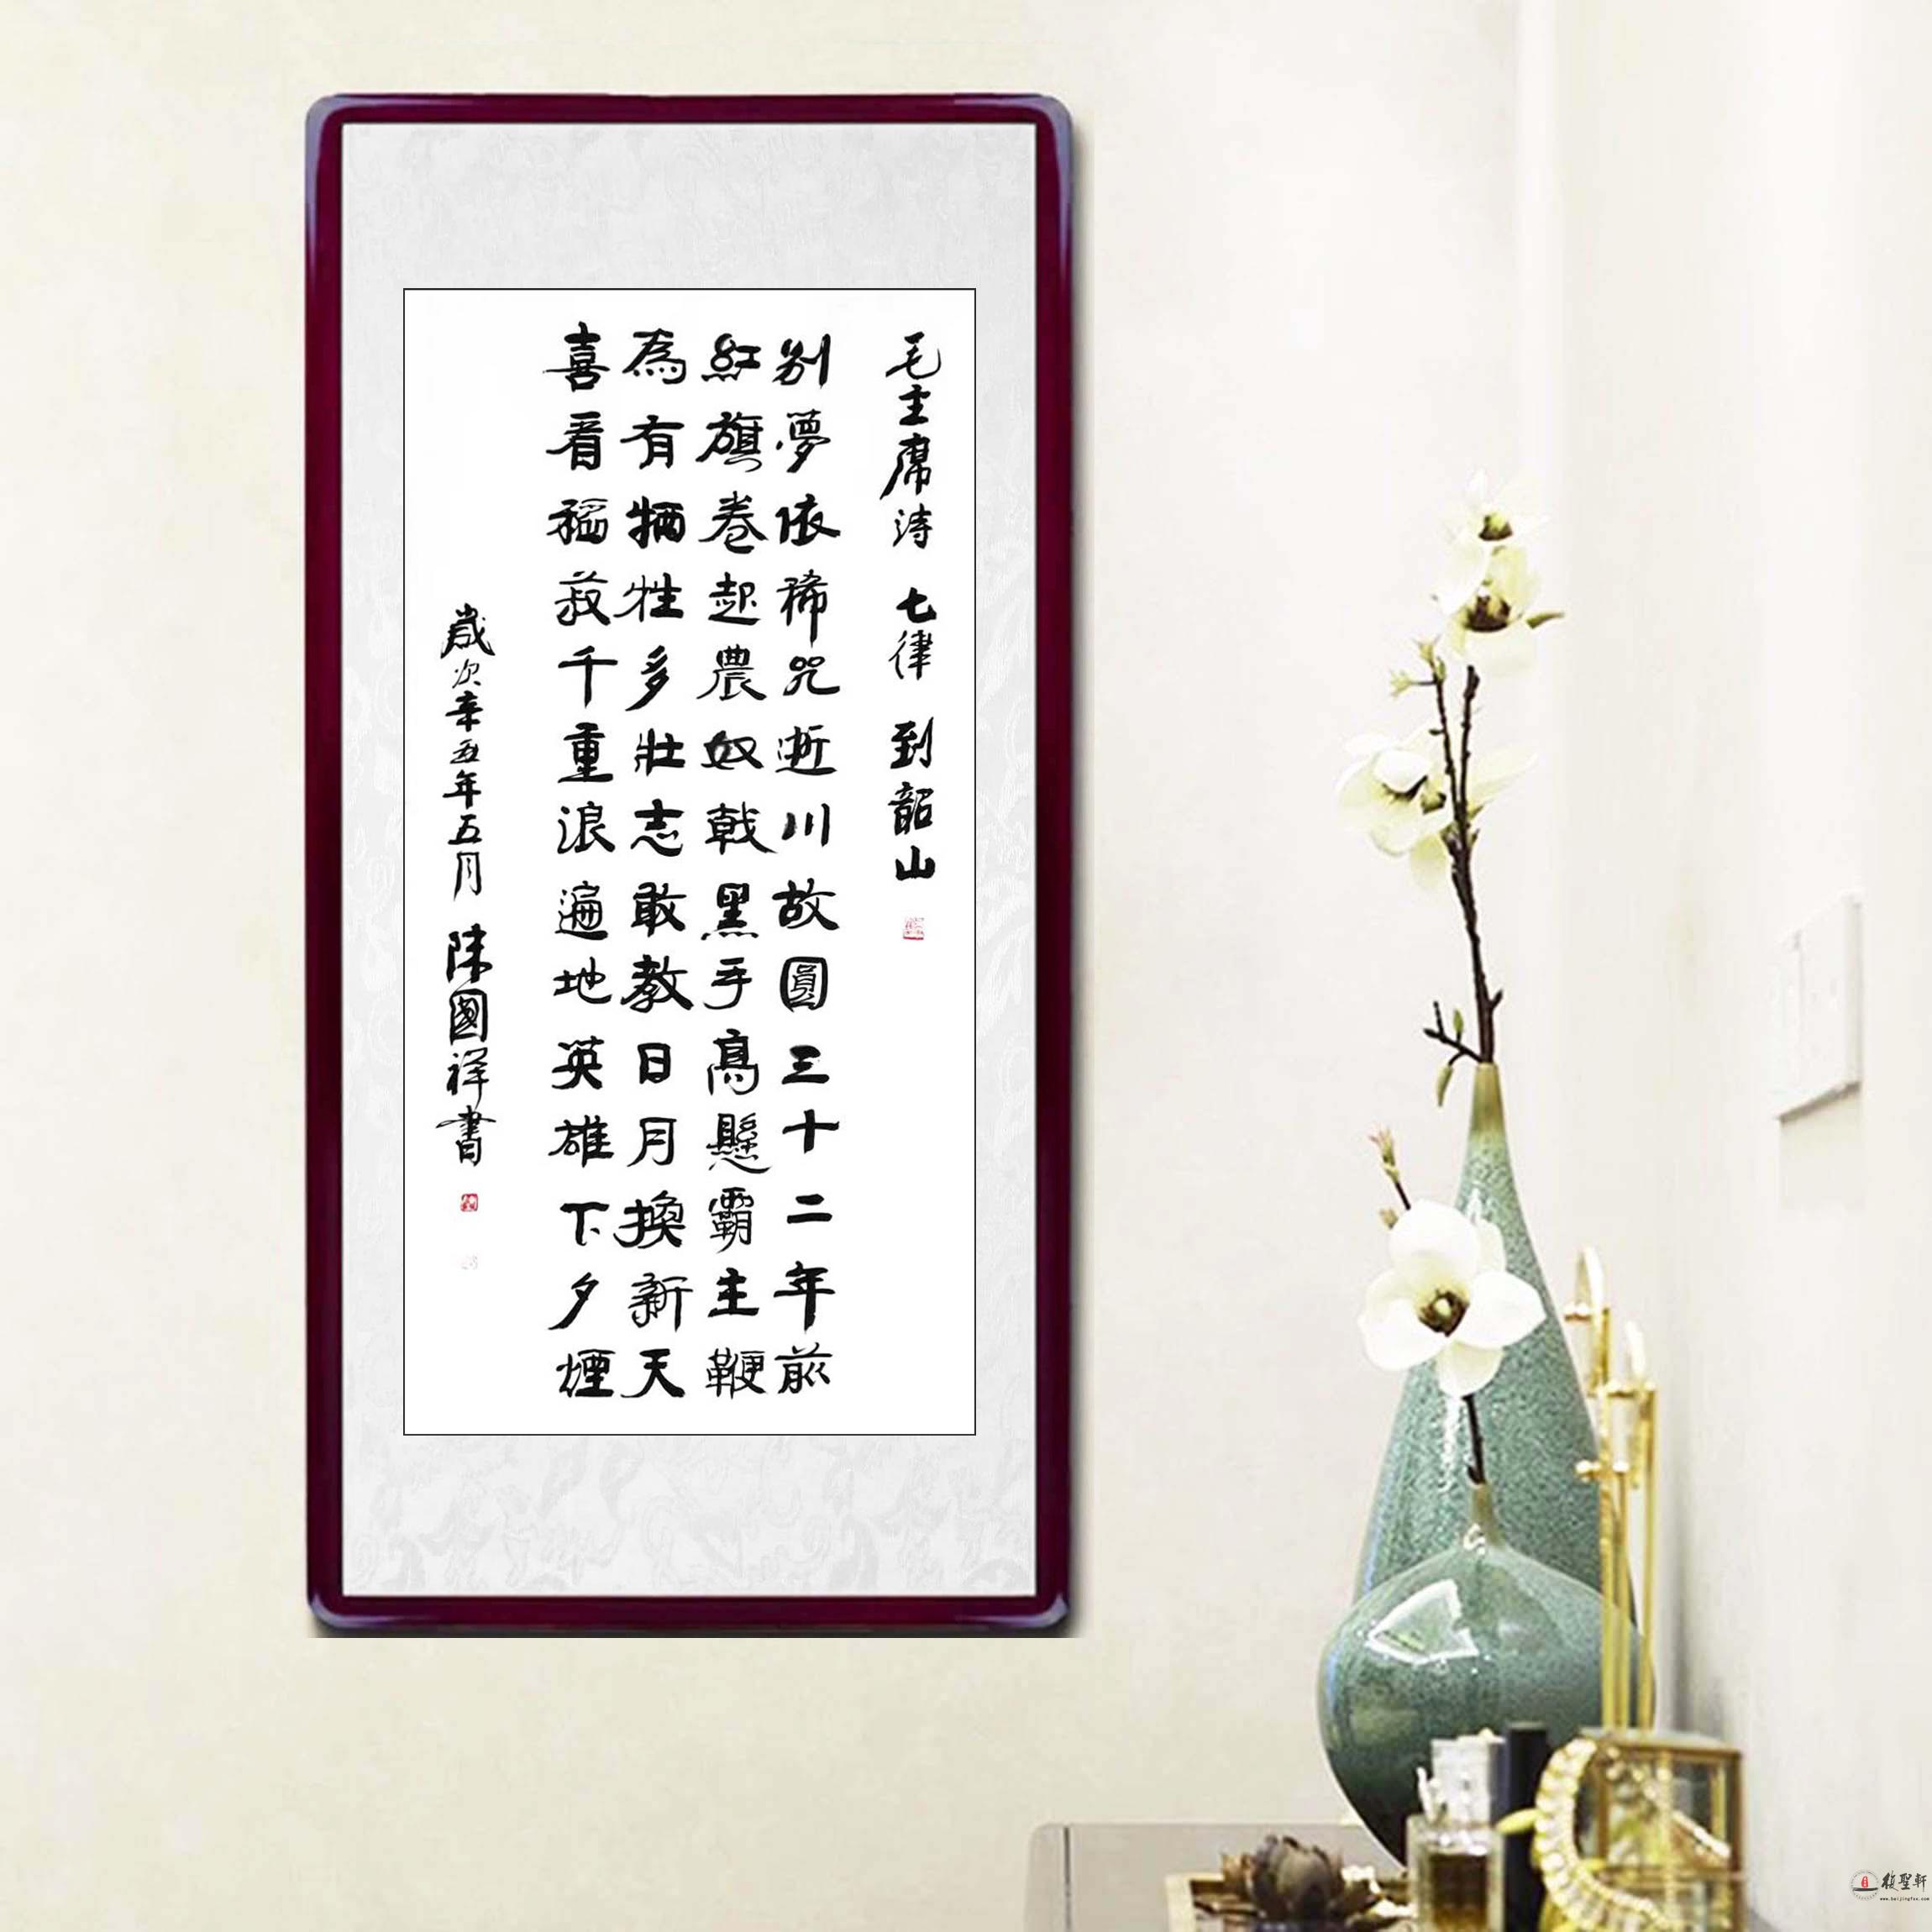 毛主席詩 七律 到韶山
别夢依稀咒逝川故園三十二年前
紅旗卷起農奴戟黑手高懸霸主鞭
為有犧牲多壯志敢教日月換新天
喜看稻菽千重浪遍地英雄下夕煙
歲次辛丑年五月 陳國祥書
聖軒
www.beijingfsx.com